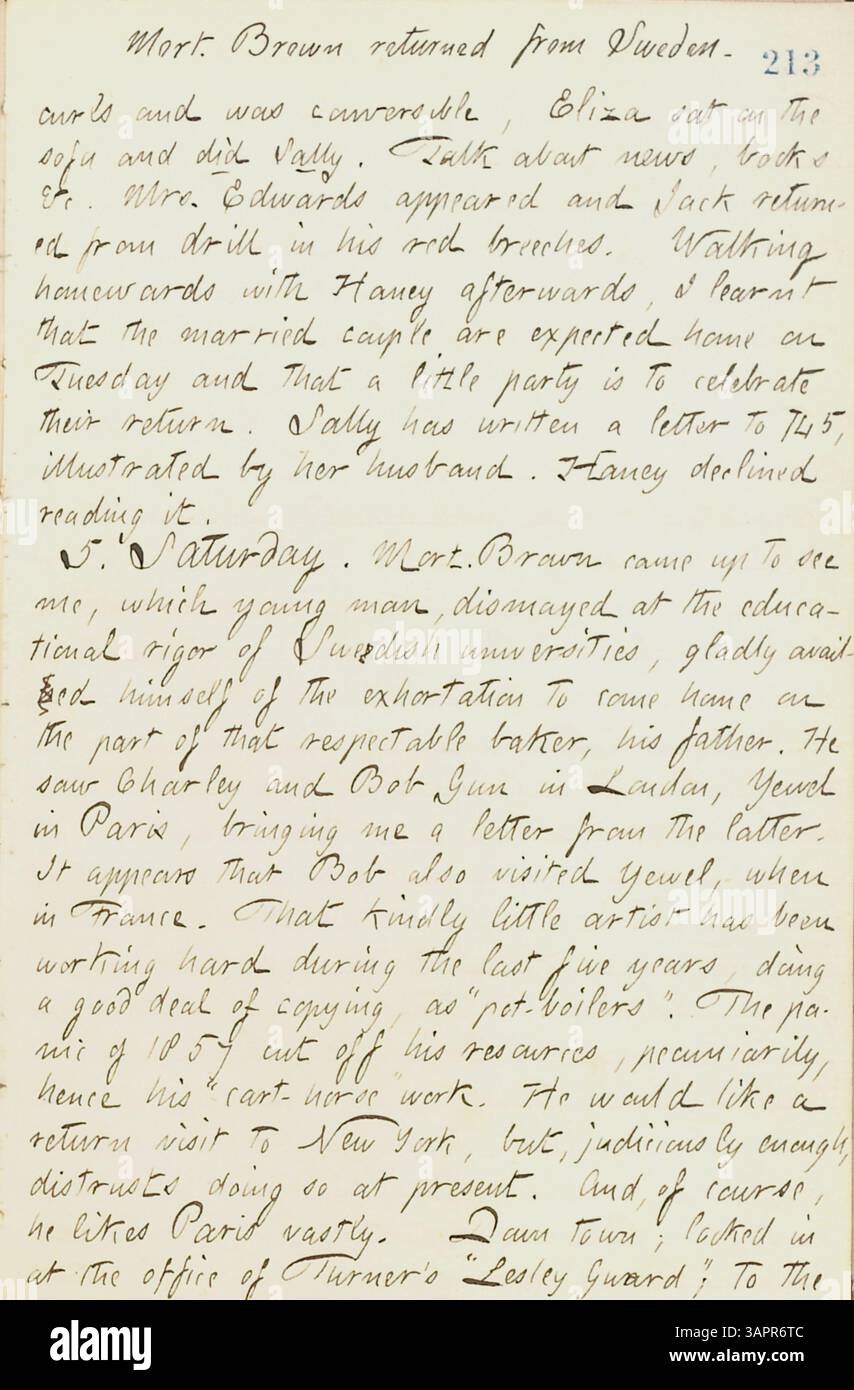 Mort. Brown returned from Sweden.
213
curls and was conversible, Eliza sat on the
sofa and did Sally. Talk about news, books
&c. Mrs. Edwards appeared and Jack return-
ed from drill in his red breeches. Walking
homewards with Haney afterwards, I learnt
that the married couple are expected home on
Tuesday and that a little party is to celebrate
their return. Sally has written a letter to 745,
illustrated by her husband. Haney declined
reading it.
5. Saturday. Mort. Brown came up to see
me, which young man, dismayed at the educa-
tional rigor of Swedish universities, gladly avail-
ed himself of the exhortation to come home on
the part of that respectable baker, his father. He
saw Charley and Bob Gun in London, Yewel
in Paris, bringing me a letter from the latter.
It appears that Bob also visited Yewel, when
in France. That kindly little artist has been
working hard during the last five years, doing
a good deal of copying, as "pot-boilers". The pa-
nic of 1857 cut off his resources, pecuniarily,
hence his "cart-horse" work. He would like a
return visit to New York, but, judiciously enough,
distrusts doing so at present. And, of course,
he likes Paris vastly. Down town; looked in
at the office of Turner's "Lesley Guard"; to the
alamy
Image ID: 3APR6TC
www.alamy.com